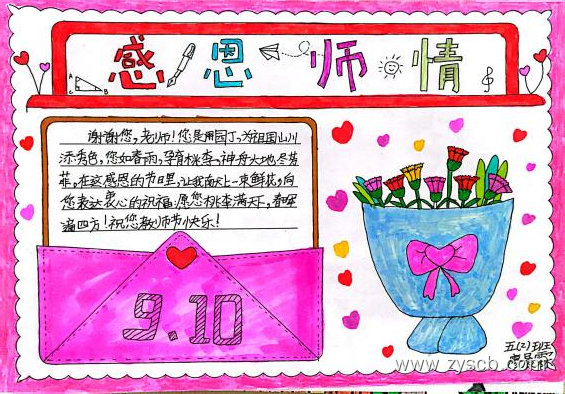 感恩师情
A
C
B
谢谢您，老师！您是用园丁，为祖国山川
添秀色，您如春雨，孕育桃李，神舟大地尽芳
菲。在这感恩的节日里，让我献上一束鲜花，向
您表达衷心的祝福，愿您桃李满天下，春晖
遍四方！祝您教师节快乐！
9.10
五(2)班
www.zyscb.com